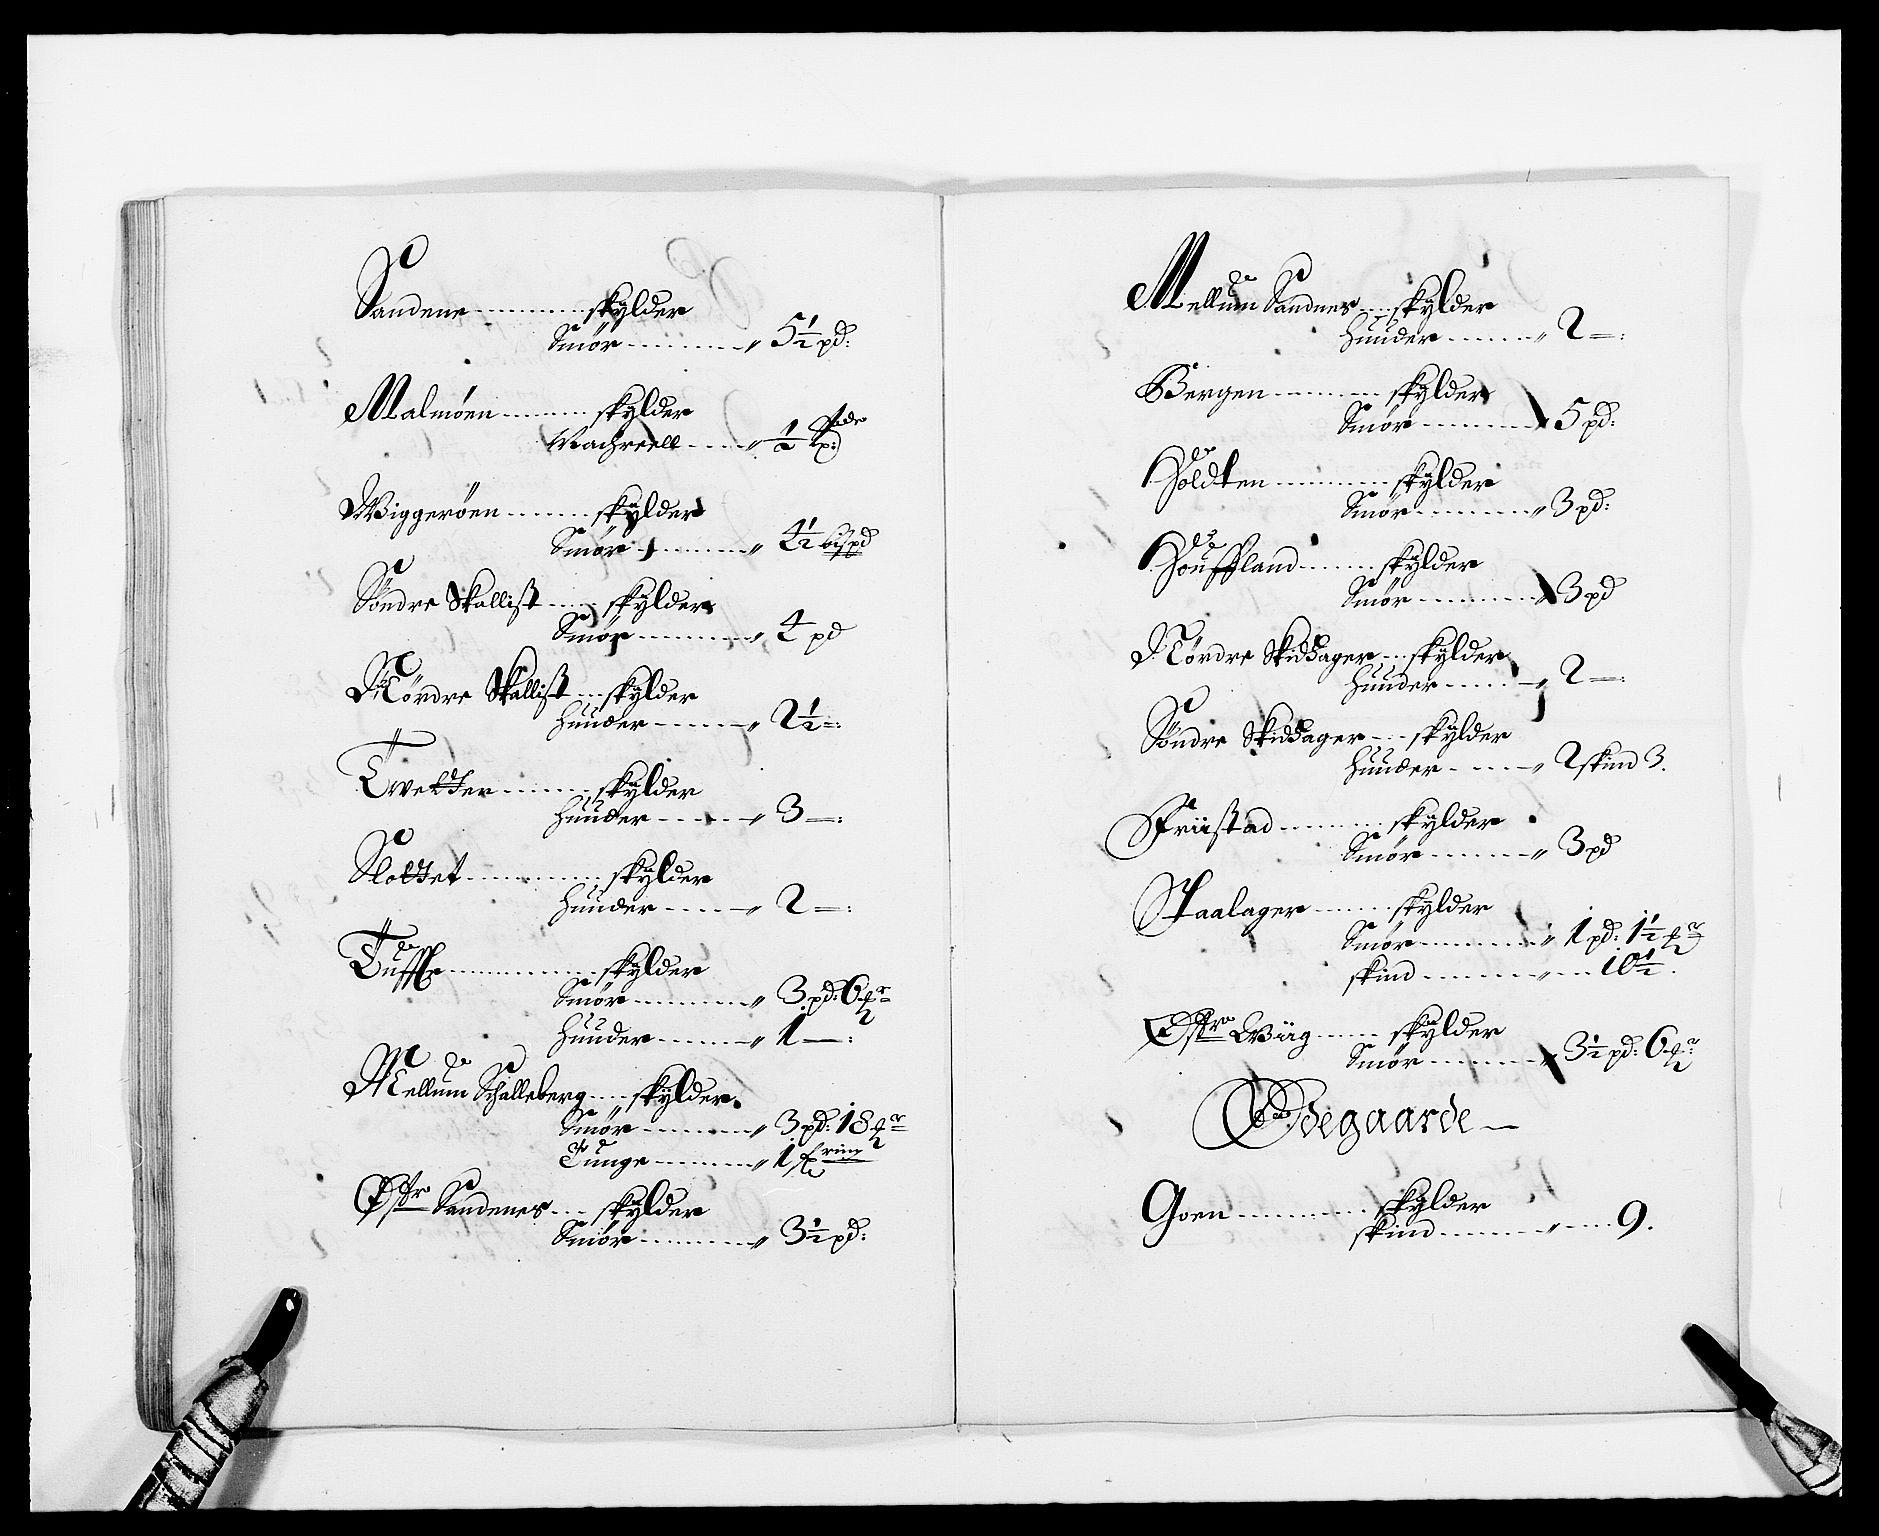 Sandene ........ skylder
Smør ........ „ 5½ pd:
Malmøen ........ skylder
Machreell ..... „ ½ tde
Wiggerøen ....... skylder
Smør ........ „ 4½ bispd
Søndre Skallist .... skylder
Smør ........ „ 4 pd
Nordre Skallist ... skylder
Huuder ....... „ 2½ –:
Tvedter ....... skylder
Huuder ...... „ 3 –:
Slottet ......... skylder
Huuder ...... „ 2 –:
Tuffte ......... skylder
Smør ........ „ 3 pd: 6 mr
Huuder ....... „ 1 –:
Mellum Schalleberg .... skylder
Smør ........ „ 3 pd: 18 mr
Tunge ....... „ 1
Østre Sandenes ... skylder
Smør ........ „ 3½ pd:
Mellum Sandnes ... skylder
Huuder ...... „ 2 –:
Bergen ....... skylder
Smør ........ „ 5 pd:
Holdten ........ skylder
Smør ........ „ 3 pd:
Houffland ...... skylder
Smør ........ „ 3 pd
Nordre Skiddager ... skylder
Huuder ...... „ 2 –:
Søndre Skiddager ... skylder
Huuder ..... „ 2 skind 3.
Friistad ....... skylder
Smør ....... „ 3 pd
Haalager ...... skylder
Smør ........ „ 1 pd: 1½ mr
skind ........ „ ... 10½.
Østre Wiig ..... skylder
Smør ........ „ 3½ pd: 6 mr
Ødegaarde –
Goen ........ skylder
skind ....... „ .... 9.